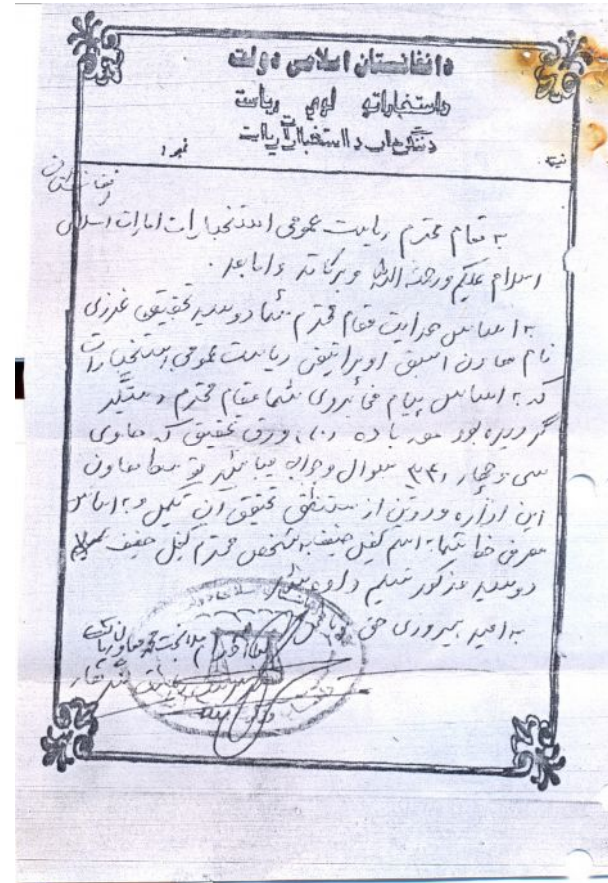 دافغانستان اسلامی دولت
داستخباراتو لوی ریاست
دننگرهار داستخباراتو ریاست
نمبر
نیټه
به مقام محترم ریاست عمومی استخبارات امارات اسلامی افغانستان
اسلام علیکم ورحمة الله وبرکاته واما بعد.
به اساس هدایت مقام محترم شما دوسیه تحقیقی غرزی
نام معاون اسبق اوپراتیفی ریاست عمومی استخبارات
که به اساس پیام شما مقام محترم دستگیر
گردیده بود ورق تحقیق که حاوی
سی و چهار ۳۴ سوال وجواب میباشد توسط معاون
این اداره و از تحقیق آن تکمیل و به اساس
معرفی خط شما به اسم کفیل حنیف به شخص محترم کفیل حنیف
دوسیه مذکور تسلیم داده شد
به امید پیروزی حق